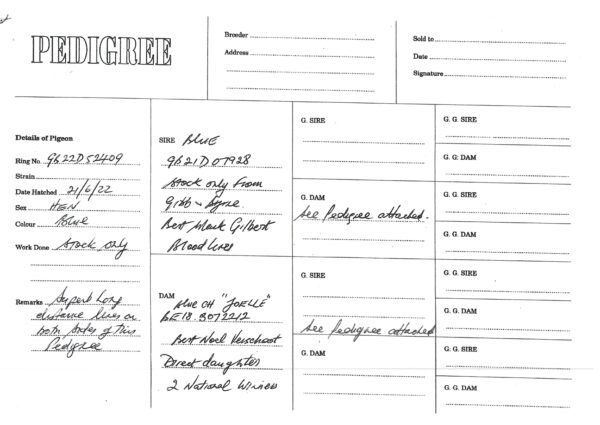 PEDIGREE
Breeder
Address
Sold to
Date
Signature
Details of Pigeon
Ring No. GB22D52409
Strain
Date Hatched 21/6/22
Sex HEN
Colour Blue
Work Done Stock only
Remarks Superb Long
distance lines on
both sides of this
Pedigree
SIRE BLUE
GB21D07928
Stock only From
Gibb - 
Best Mark Gilbert
Blood lines
DAM Blue CH "JOELLE"
BE18 3072212
Best Noel Verschoot
Direct daughter
2 National Winners
G. SIRE
G. DAM
See Pedigree attached.
G. SIRE
See Pedigree attached
G. DAM
G. G. SIRE
G. G. DAM
G. G. SIRE
G. G. DAM
G. G. SIRE
G. G. DAM
G. G. SIRE
G. G. DAM